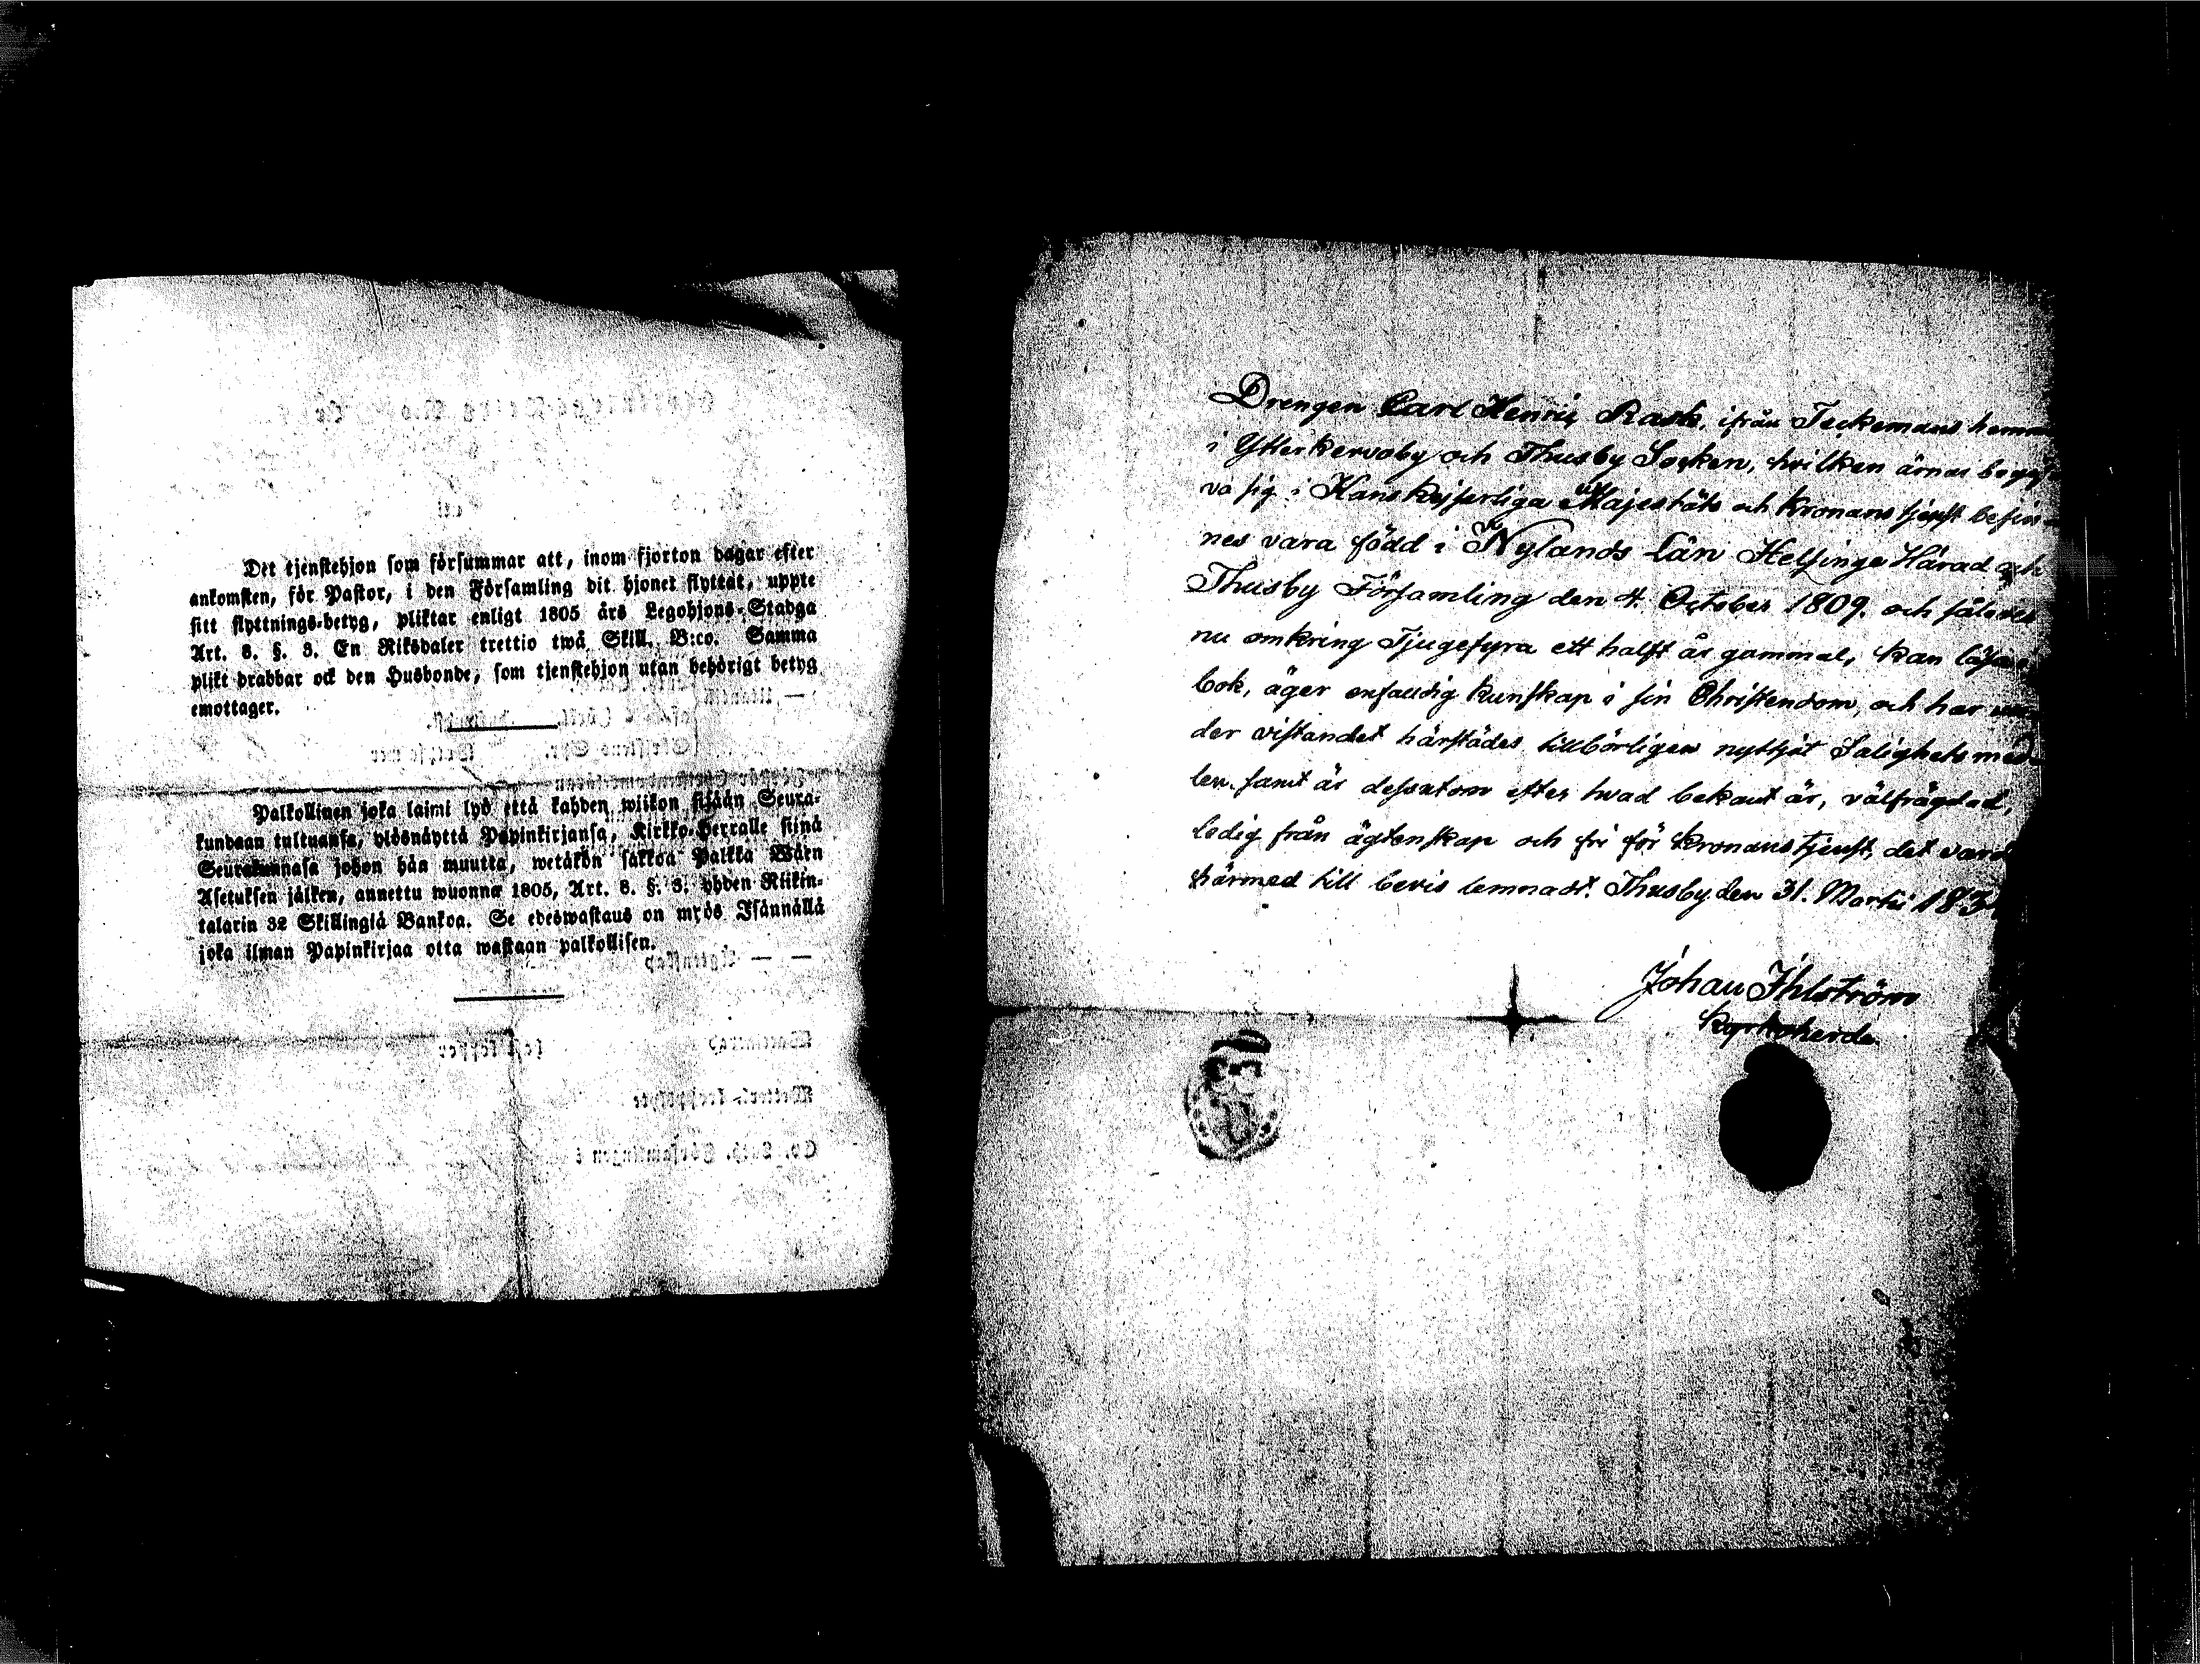 Det tjenstehjon som försummar att, inom fjorton dagar efter
ankomsten, för Pastor, i den Församling dit hjonet flyttat, uppte
sitt flyttnings-betyg, pliktar enligt 1805 års Legohjons-Stadga
Art. 8. §. 3. En Riksdaler trettio twå Skill. B:co. Samma
plikt drabbar ock den Husbonde, som tjenstehjon utan behörigt betyg
emottager.
Palkollinen joka laimi lyö että kahden wiikon sisään Seura-
kundaan tultuansa, ylösnäyttä Papinkirjansa, Kirkko-Herralle siinä
Seurakunnasa johon hän muutta, wetäkön sakkoa Palkka Wäen
Asetuksen jälken, annettu wuonna 1805, Art. 8. §. 3. yhden Riikin-
talarin 32 Skillingiä Bankoa. Se edeswastaus on myös Isännällä
joka ilman Papinkirjaa otta wastaan palkollisen.
Drengen Carl Henric Rask, ifrån Teckemans hemm
i Ytterkervoby och Thusby Socken, hvilken ärnar begif
va sig i Hans Kejserliga Majestäts och Kronans tjenst befin-
nes vara född i Nylands Län Helsinge Härad och
Thusby Församling den 4. October 1809. och således
nu omkring Tjugefyra ett halft år gammal, kan läsa i
bok, äger enfaldig kunskap i sin Christendom, och har un
der vistandet härstädes tillbörligen nyttjat Salighets med-
len. samt är dessutom efter hvad bekant är, välfrägdad,
ledig från ägtenskap och fri för Kronans tjenst, det varder
härmed till bevis lemnadt. Thusby den 31. Martii 183
Johan Ihlström
Kyrkoherde